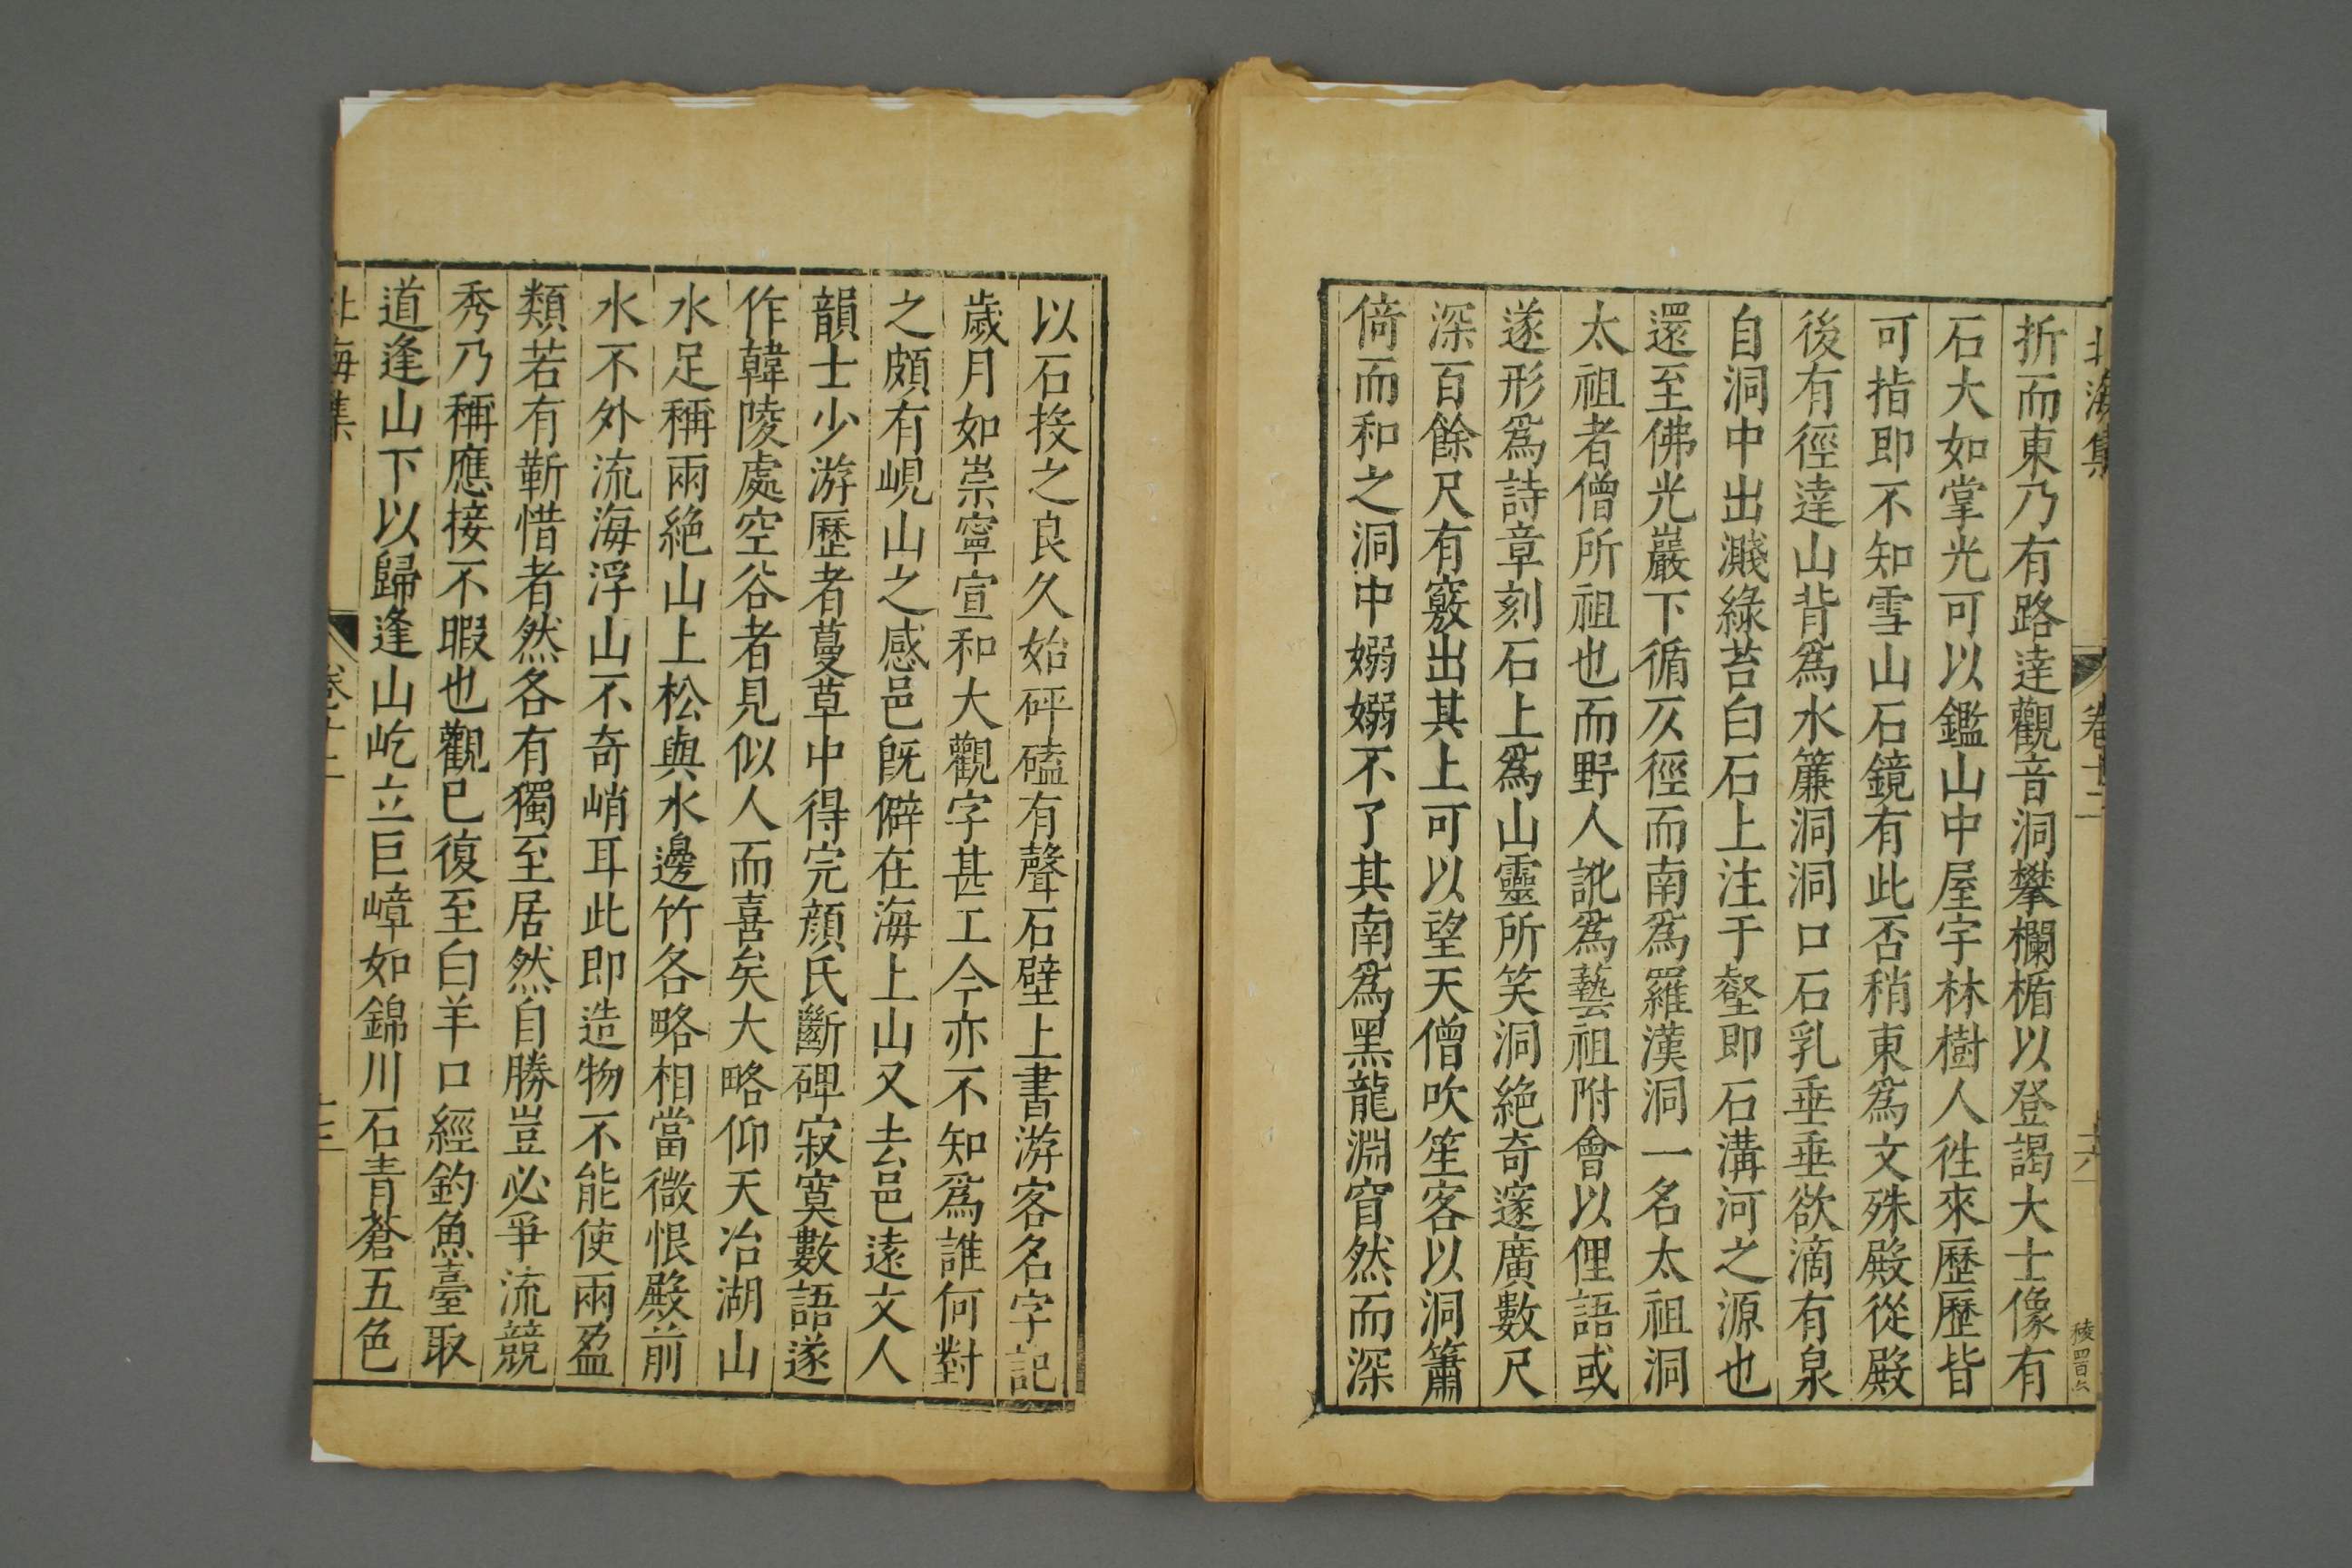 北海集 卷十二 十六 稜四百六
折而東乃有路達觀音洞攀欄楯以登謁大士像有
石大如掌光可以鑑山中屋宇林樹人徃來歷歷皆
可指即不知雪山石鏡有此否稍東爲文殊殿從殿
後有徑達山背爲水簾洞洞口石乳垂垂欲滴有泉
自洞中出濺綠苔白石上注于壑即石溝河之源也
還至佛光巖下循仄徑而南爲羅漢洞一名太祖洞
太祖者僧所祖也而野人訛爲藝祖附會以俚語或
遂形爲詩章刻石上爲山靈所笑洞絶奇邃廣數尺
深百餘尺有竅出其上可以望天僧吹笙客以洞簫
倚而和之洞中嫋嫋不了其南爲黑龍淵窅然而深
以石投之良久始砰磕有聲石壁上書游客名字記
歲月如崇寧宣和大觀字甚工今亦不知爲誰何對
之頗有峴山之感邑旣僻在海上山又去邑遠文人
韻士少游歷者蔓草中得完顔氏斷碑寂寞數語遂
作韓陵處空谷者見似人而喜矣大略仰天冶湖山
水足稱兩絶山上松與水邊竹各略相當微恨殿前
水不外流海浮山不奇峭耳此即造物不能使兩盈
類若有靳惜者然各有獨至居然自勝豈必爭流競
秀乃稱應接不暇也觀已復至白羊口經釣魚臺取
道逢山下以歸逢山屹立巨嶂如錦川石青蒼五色
北海集 卷十二